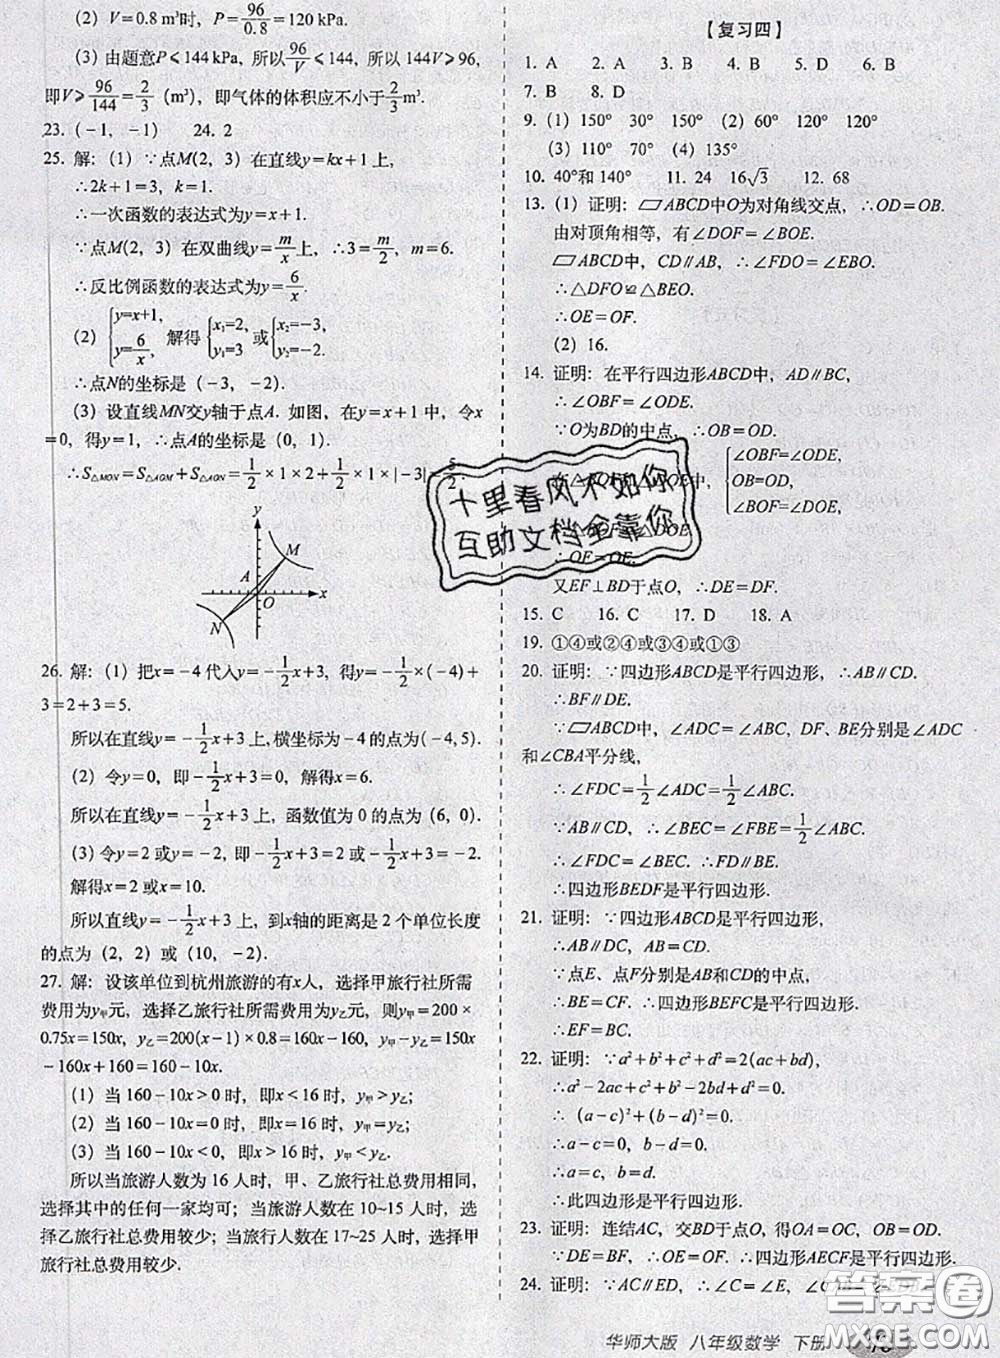 (2) V=0.8 m³时, P=96/0.8=120 kPa.
(3) 由题意P⩽144 kPa, 所以96/V⩽144, 所以 144V⩾96,
即V⩾96/144=2/3 (m³), 即气体的体积应不小于2/3m³.
23. (-1, -1) 24. 2
25. 解: (1) ∵点M(2, 3) 在直线y=kx+1 上,
∴2k+1=3, k=1.
∴一次函数的表达式为y=x+1.
∵点M(2, 3) 在双曲线y=m/x上, ∴3=m/2, m=6.
∴反比例函数的表达式为y=6/x.
(2) {y=x+1, y=6/x, 解得 {x₁=2, y₁=3 或{x₂=-3, y₂=-2.
∴点N的坐标是 (-3, -2).
(3) 设直线MN交y轴于点A. 如图, 在y=x+1 中, 令x
=0, 得y=1, ∴点A的坐标是 (0, 1).
∴S△MON=S△AOM+S△AON=1/2×1×2+1/2×1×|-3|=5/2.
y
M
A
O
x
N
26. 解: (1) 把x=-4 代入y=-1/2x+3, 得y=-1/2×(-4)+
3=2+3=5.
所以在直线y=-1/2x+3上,横坐标为-4的点为(-4,5).
(2) 令y=0, 即-1/2x+3=0, 解得x=6.
所以在直线y=-1/2x+3 上, 函数值为 0 的点为 (6, 0).
(3) 令y=2 或y=-2, 即-1/2x+3=2或-1/2x+3=-2.
解得x=2 或x=10.
所以直线y=-1/2x+3 上, 到x轴的距离是 2 个单位长度
的点为 (2, 2) 或 (10, -2).
27. 解: 设该单位到杭州旅游的有x人, 选择甲旅行社所需
费用为y甲元, 选择乙旅行社所需费用为y乙元, 则y甲=200×
0.75x=150x, y乙=200(x-1)×0.8=160x-160, y甲-y乙=150x
-160x+160=160-10x.
(1) 当 160-10x>0 时, 即x<16 时, y甲>y乙;
(2) 当 160-10x=0 时, 即x=16 时, y甲=y乙;
(3) 当 160-10x<0, 即x>16 时, y甲<y乙.
所以当旅游人数为 16 人时, 甲、乙旅行社总费用相同,
选择其中的任何一家均可; 当旅游人数在 10~15 人时, 选
择乙旅行社总费用较少; 当旅行人数在 17~25 人时, 选择甲
旅行社总费用较少.
【复习四】
1. A 2. A 3. B 4. B 5. D 6. B
7. B 8. D
9. (1) 150° 30° 150° (2) 60° 120° 120°
(3) 110° 70° (4) 135°
10. 40°和 140° 11. 24 16√3 12. 68
13. (1) 证明: ▱ABCD中O为对角线交点, ∴OD=OB.
由对顶角相等, 有∠DOF=∠BOE.
▱ABCD中, CD∥AB, ∴∠FDO=∠EBO.
∴△DFO≌△BEO.
∴OE=OF.
(2) 16.
14. 证明: 在平行四边形ABCD中, AD∥BC,
∴∠OBF=∠ODE.
∵O为BD的中点, ∴OB=OD.
{∠OBF=∠ODE, OB=OD, ∠BOF=∠DOE,
十里春风不如你
互助文档全靠你
∴OF=OE.
又EF⊥BD于点O, ∴DE=DF.
15. C 16. C 17. D 18. A
19. ①④或②④或③④或①③
20. 证明: ∵四边形ABCD是平行四边形, ∴AB∥CD.
∴BF∥DE.
∵▱ABCD中, ∠ADC=∠ABC, DF、BE分别是∠ADC
和∠CBA平分线,
∴∠FDC=1/2∠ADC=1/2∠ABC.
∵AB∥CD, ∴∠BEC=∠FBE=1/2∠ABC.
∴∠FDC=∠BEC. ∴FD∥BE.
∴四边形BEDF是平行四边形.
21. 证明: ∵四边形ABCD是平行四边形,
∴AB∥DC, AB=CD.
∵点E、点F分别是AB和CD的中点,
∴BE=CF. ∴四边形BEFC是平行四边形.
∴EF=BC.
22. 证明: ∵a²+b²+c²+d²=2(ac+bd),
∴a²-2ac+c²+b²-2bd+d²=0.
∴ (a-c)²+(b-d)²=0.
∴a-c=0, b-d=0.
∴a=c, b=d.
∴此四边形是平行四边形.
23. 证明: 连结AC, 交BD于点O, 得OA=OC, OB=OD.
∵DE=BF, ∴OE=OF. ∴四边形AECF是平行四边形.
24. 证明: ∵AC∥ED, ∴∠C=∠E, ∠CAB=
华师大版 八年级数学 下册
答案圈